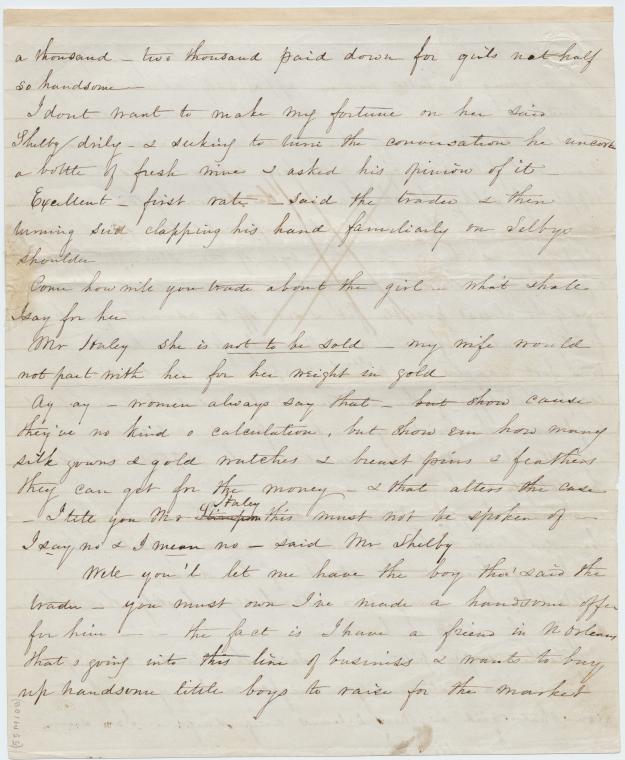 a thousand – two thousand paid down for girls not half
so handsome –
I dont want to make my fortune on her said
Shelby drily – & seeking to turn the conversation he uncorkd
a bottle of fresh wine & asked his opinion of it –
Excellent – first rate – said the trader & then
turning said clapping his hand familiarly on Selbys
shoulder
Come how will you trade about the girl – what shall
I say for her
Mr Haley she is not to be sold – my wife would
not part with her for her weight in gold
Ay ay – women always say that – but show cause
they've no kind o calculation, but show em how many
silk gowns & gold watches & breast pins & feathers
they can get for the money – & that alters the case
Haley
– I tell you Mr this must not be spoken of –
I say no & I mean no – said Mr Shelby
Well you'l let me have the boy tho' said the
trader – you must own I've made a handsome offer
for him – – the fact is I have a friend in N Orleans
that s going into this line of business & wants to buy
up handsome little boys to raise for the market